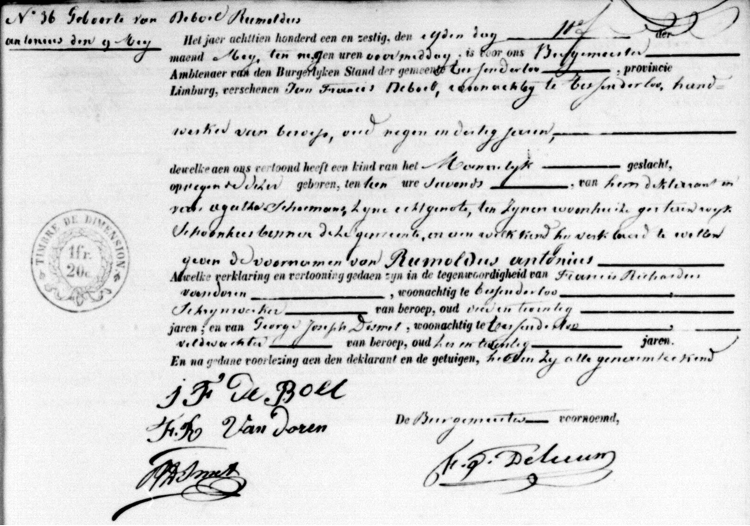 N° 36 Geboorte van Deboel Rumoldus
antonius den 9 Mey
Het jaer achttien honderd een en zestig, den elfden dag der
maend Mey, ten negen uren voormiddag, is voor ons Burgemeester
Ambtenaer van den Burgerlyken Stand der gemeente Tessenderloo, provincie
Limburg, verschenen Jan Francis Deboel, woonachtig te Tessenderloo, hand-
werker van beroep, oud negen en dertig jaren,
dewelke aen ons vertoond heeft een kind van het Mannelyk geslacht,
op negen dezer geboren, ten tien ure savonds, van hem deklarant en
van agatha Schoermans, zyne echtgenote, ten zynen woonhuize gestaen wyk
Schoonhees binnen deze gemeente, en aen welk kind hy verklaerd te willen
geven de voornamen van Rumoldus antonius
Alwelke verklaring en vertooning gedaen zyn in de tegenwoordigheid van Francis Richardus
vandoren, woonachtig te Tessenderloo
Schrynwerker van beroep, oud en twintig
jaren; en van George Joseph Desmet, woonachtig te Tessenderloo
veldwachter van beroep, oud en twintig jaren.
En na gedane voorlezing aen den deklarant en de getuigen, hebben zy alle genoemteekend
j F De Boel
F. R Van Doren
De Burgemeester voornoemd,
TIMBRE DE DIMENSION
1fr.
20c